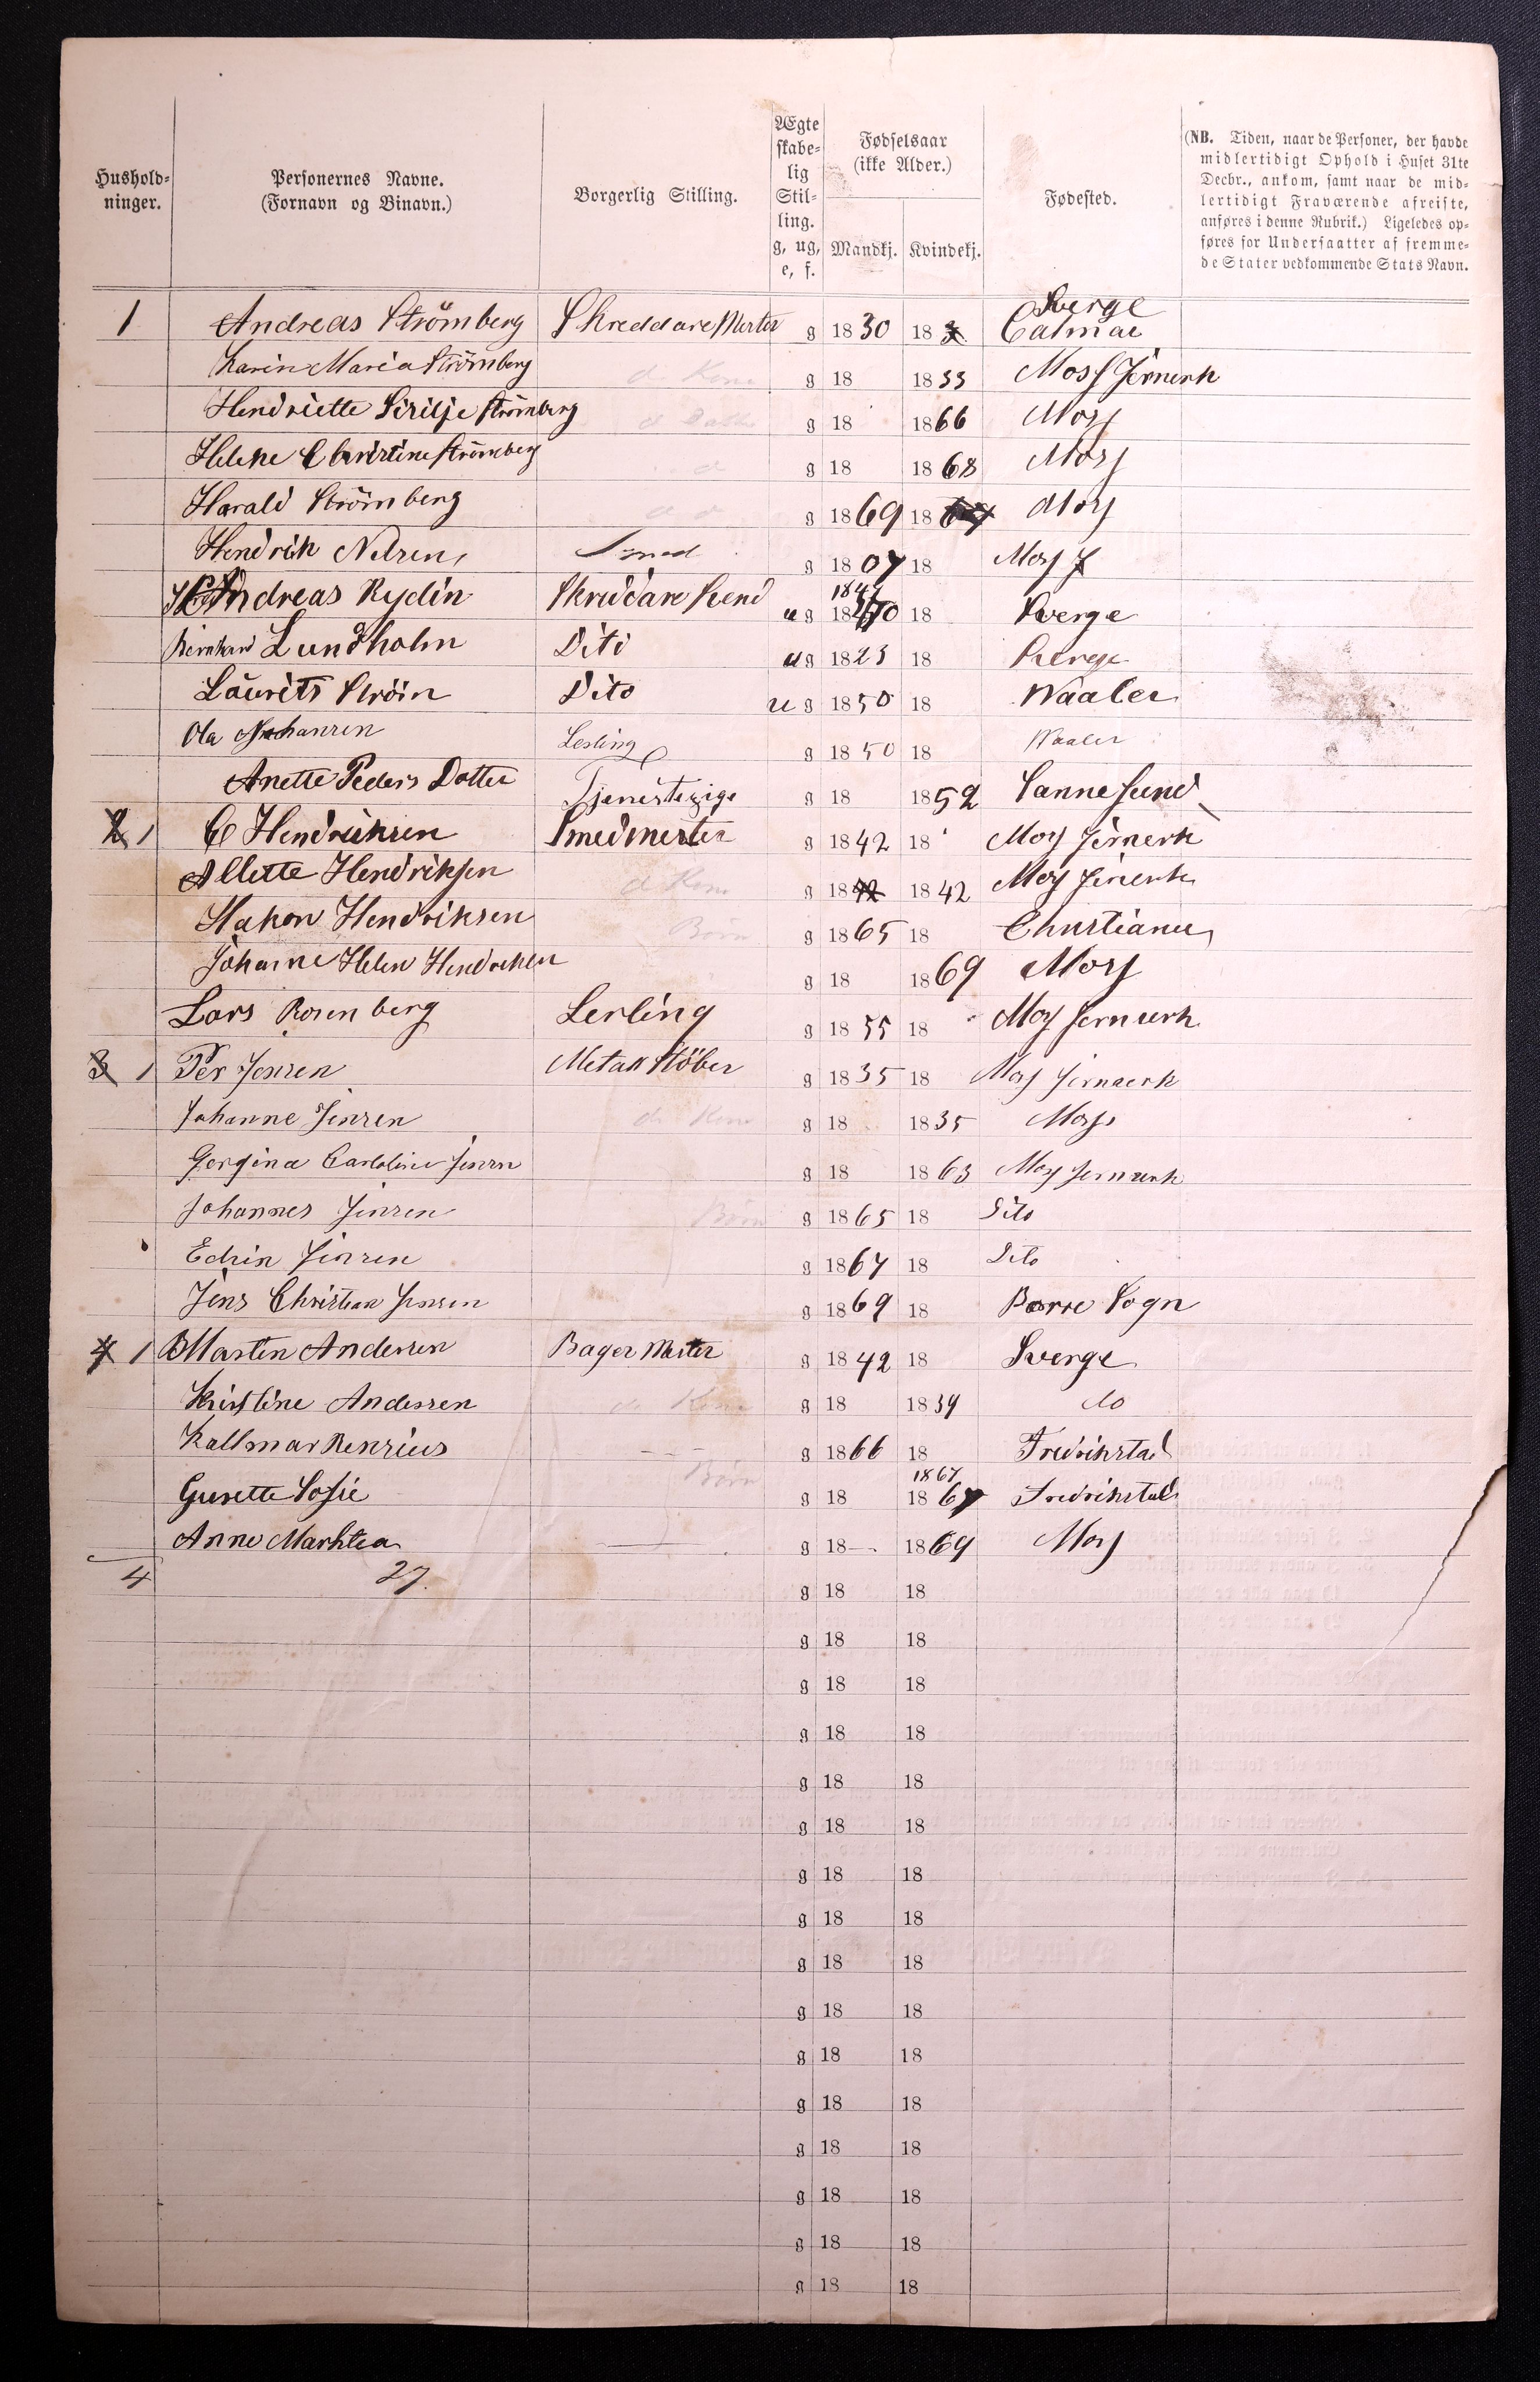 Hushold-
ninger.
Personernes Navne.
(Fornavn og Binavn.)
Borgerlig Stilling.
Ægte
skabe-
lig
Stil-
ling.
g, ug,
e, f.
Fødselsaar
(ikke Alder.)
Mandkj. Kvindekj.
Fødested.
(NB. Tiden, naar de Personer, der havde
midlertidigt Ophold i Huset 31te
Decbr., ankom, samt naar de mid-
lertidigt Fraværende afreiste,
anføres i denne Rubrik.) Ligeledes op-
føres for Undersaatter af fremme-
de Stater vedkommende Stats Navn.
Sverge
1 Andreas Strömberg Skreddare Mester g 1830 18 Calmar
Karin Maria Strömberg d. Kone g 18 1833 Moss Jernverk
Hendriette Sirilje Strömberg d Datter g 18 1866 Moss
Helene Christine Strömberg d g 18 1868 Moss
Harald Strömberg d d g 1869 18 Moss
Hendrik Nilsen Smed g 1807 18 Moss J
1847
Andreas Rydin Skreddare Svend u g 18 18 Sverge
Bernhard Lundholm Diti u g 1823 18 Sverge
Laurits Ström Dito u g 1850 18 Waaler
Ola Johansen Lerling g 1850 18 Waaler
Anette Peders Dotter Tjenistepige g 18 1852 Sannesund
2 1 C Hendriksen Smedmester g 1842 18 Moss Jernverk
Allette Hendriksen d Kone g 1842 1842 Moss Jernverk
Hakon Hendriksen Børn g 1865 18 Christiania
Johanne Helen Hendriksen g 18 1869 Moss
Lars Rosenberg Lerling g 1855 18 Moss Jernverk
3 1 Per Jensen Metallstöber g 1835 18 Moss Jernverk
Johanne Jensen d. Kone g 18 1835 Moss
Gorgina Caroline Jensen g 18 1863 Moss Jernverk
Johannes Jensen Børn g 1865 18 Dito
Edvin Jensen g 1867 18 Dito
Jens Christian Jensen g 1869 18 Borre Sogn
4 1 Martin Andersen Bager Mester g 1842 18 Sverge
Kristine Andersen d. Kone g 18 1839 do
Kallmar Rensius - - - g 1866 18 Fredrikstad
1867
Gusette Sofie Børn g 18 1867 Fredrikstad
Anne Marktea g 18 1869 Moss
4 27.
g 18 18
g 18 18
g 18 18
g 18 18
g 18 18
g 18 18
g 18 18
g 18 18
g 18 18
g 18 18
g 18 18
g 18 18
g 18 18
g 18 18
g 18 18
g 18 18